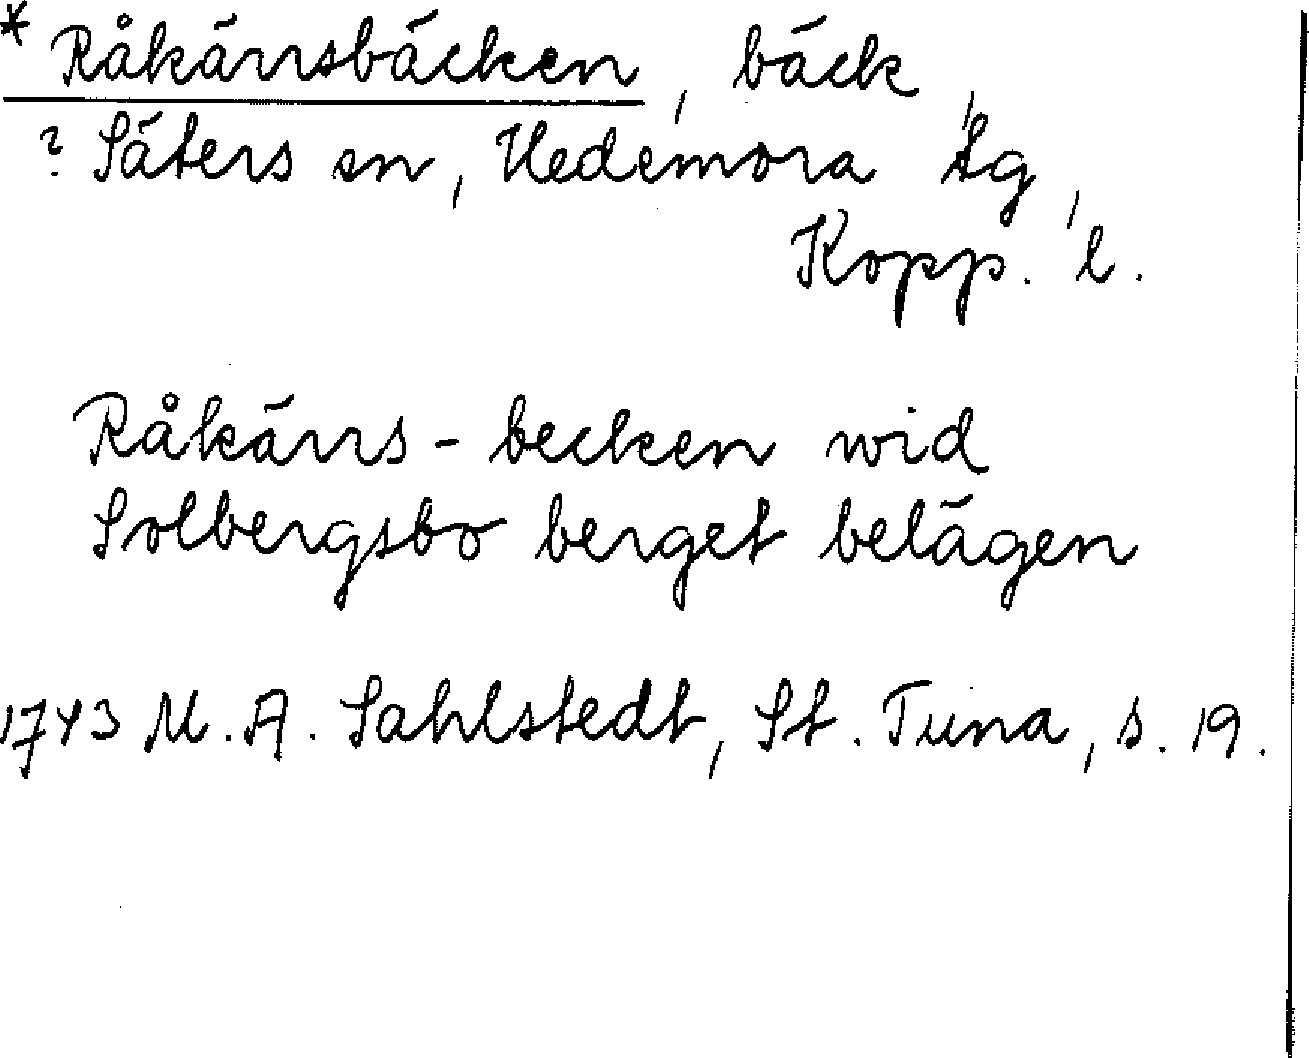 * Råkärrsbäcken, bäck,
? Säters sn, Hedemora tg,
Kopp. l.
Råkärrs-becken wid
Solbergsbo berget belägen
1743 M.A. Sahlstedt, St. Tuna, s. 19.